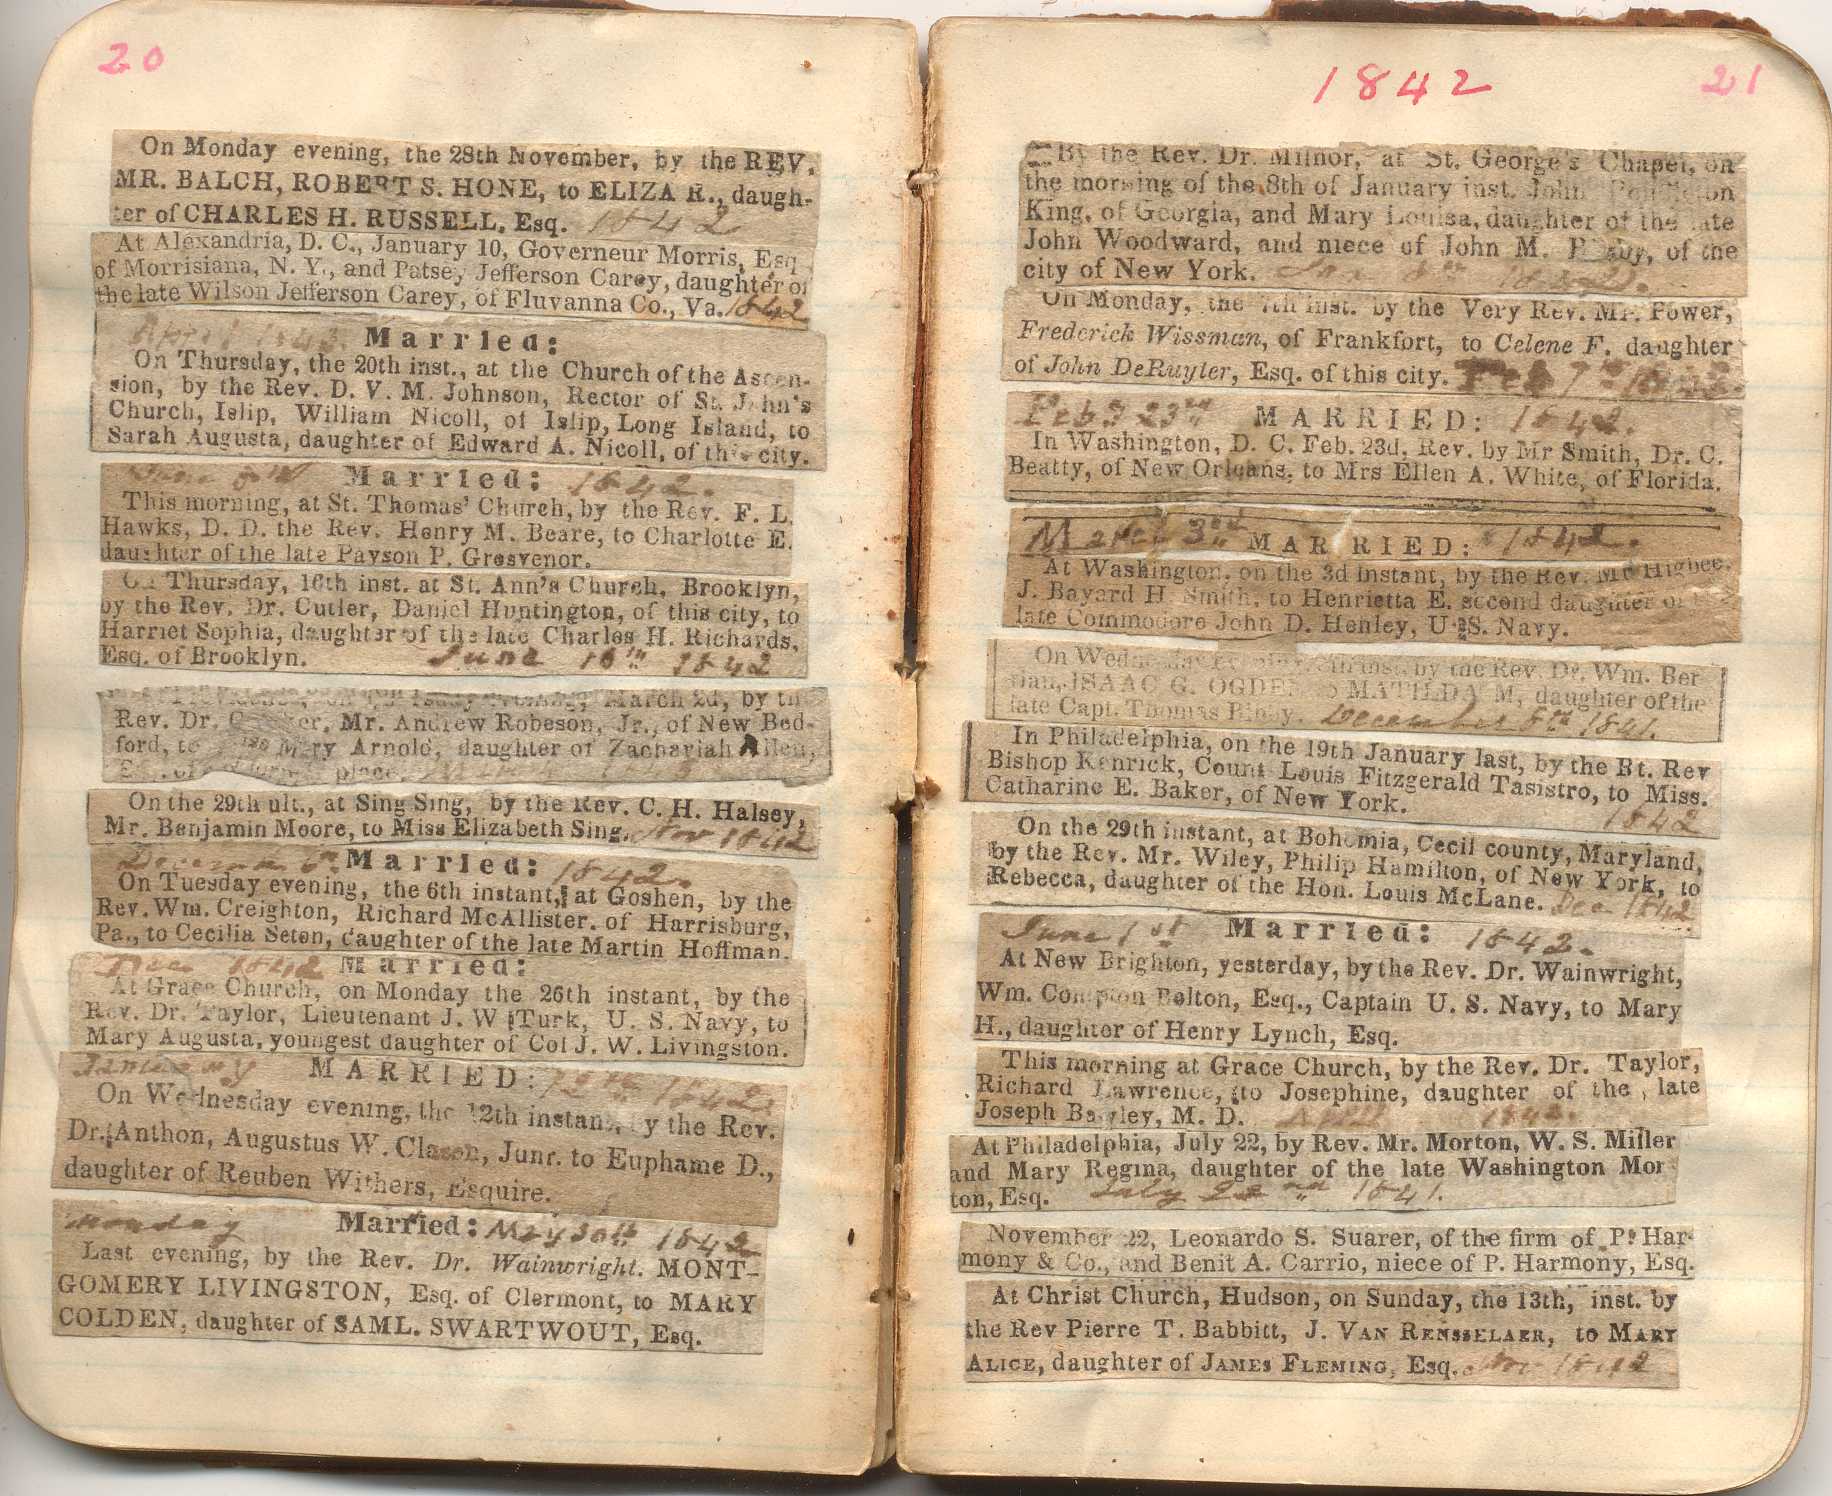 20
On Monday evening, the 28th November, by the REV.
MR. BALCH, ROBERT S. HONE, to ELIZA R., daugh-
ter of CHARLES H. RUSSELL, Esq. 1842
At Alexandria, D. C., January 10, Governeur Morris, Esq
of Morrisiana, N. Y., and Patsey Jefferson Carey, daughter of
the late Wilson Jefferson Carey, of Fluvanna Co., Va. 1842
April 1843. Married:
On Thursday, the 20th inst., at the Church of the Ascen-
sion, by the Rev. D. V. M. Johnson, Rector of St. John's
Church, Islip, William Nicoll, of Islip, Long Island, to
Sarah Augusta, daughter of Edward A. Nicoll, of this city.
June Married: 1842.
This morning, at St. Thomas' Church, by the Rev. F. L.
Hawks, D. D. the Rev. Henry M. Beare, to Charlotte E.
daughter of the late Payson P. Grosvenor.
On Thursday, 16th inst. at St. Ann's Church, Brooklyn,
by the Rev. Dr. Cutler, Daniel Huntington, of this city, to
Harriet Sophia, daughter of the late Charles H. Richards,
Esq. of Brooklyn. June 16th 1842
March 2d, by th
Rev. Dr. Mr. Andrew Robeson, Jr., of New Bed-
ford, to Mary Arnold, daughter of Zachariah Allen,
place.
On the 29th ult., at Sing Sing, by the Rev. C. H. Halsey,
Mr. Benjamin Moore, to Miss Elizabeth Sing. Nov 1842
December 6th. Married: 1842.
On Tuesday evening, the 6th instant, at Goshen, by the
Rev. Wm. Creighton, Richard McAllister. of Harrisburg,
Pa., to Cecilia Seton, daughter of the late Martin Hoffman.
Dec 1842 Married:
At Grace Church, on Monday the 26th instant, by the
Rev. Dr. Taylor, Lieutenant J. W. Turk, U. S. Navy, to
Mary Augusta, youngest daughter of Col J. W. Livingston.
January MARRIED: 12th 1842.
On Wednesday evening, the 12th instant, by the Rev.
Dr. Anthon, Augustus W. Clason, Junr. to Euphame D.,
daughter of Reuben Withers, Esquire.
Monday Married: May 30th 1842
Last evening, by the Rev. Dr. Wainwright. MONT-
GOMERY LIVINGSTON, Esq. of Clermont, to MARY
COLDEN, daughter of SAML. SWARTWOUT, Esq.
1842 21
By the Rev. Dr. Milnor, at St. George's Chapel, on
the morning of the 8th of January inst. John
King, of Georgia, and Mary Louisa, daughter of the late
John Woodward, and niece of John M. of the
city of New York. Jan 8th 1842.
On Monday, the 7th inst. by the Very Rev. Mr. Power,
Frederick Wissman, of Frankfort, to Celene F. daughter
of John DeRuyter, Esq. of this city. Feb 7th
Feb. 23rd MARRIED: 1842.
In Washington, D. C. Feb. 23d, Rev. by Mr Smith, Dr. C.
Beatty, of New Orleans, to Mrs Ellen A. White, of Florida.
March 3rd MARRIED: 1842.
At Washington, on the 3d instant, by the Rev. Mr Higbee.
J. Bayard H. Smith, to Henrietta E. second daughter of
late Commodore John D. Henley, U. S. Navy.
On Wednesday evening, 8th inst. by the Rev. Dr. Wm. Ber-
rian, ISAAC G. OGDEN to MATILDA M, daughter of the
late Capt. Thomas Bibby. December 8th 1841.
In Philadelphia, on the 19th January last, by the Rt. Rev
Bishop Kenrick, Count Louis Fitzgerald Tasistro, to Miss.
Catharine E. Baker, of New York. 1842
On the 29th instant, at Bohemia, Cecil county, Maryland,
by the Rev. Mr. Wiley, Philip Hamilton, of New York, to
Rebecca, daughter of the Hon. Louis McLane. Dec 1842
June 1st Married: 1842.
At New Brighton, yesterday, by the Rev. Dr. Wainwright,
Wm. Compton Bolton, Esq., Captain U. S. Navy, to Mary
H., daughter of Henry Lynch, Esq.
This morning at Grace Church, by the Rev. Dr. Taylor,
Richard Lawrence, to Josephine, daughter of the late
Joseph Bayley, M. D. 1842.
At Philadelphia, July 22, by Rev. Mr. Morton, W. S. Miller
and Mary Regina, daughter of the late Washington Mor
ton, Esq. July 22nd 1841.
November 22, Leonardo S. Suarer, of the firm of P. Har-
mony & Co., and Benit A. Carrio, niece of P. Harmony, Esq.
At Christ Church, Hudson, on Sunday, the 13th, inst. by
the Rev Pierre T. Babbitt, J. VAN RENSSELAER, to MARY
ALICE, daughter of JAMES FLEMING, Esq. Nov 1842